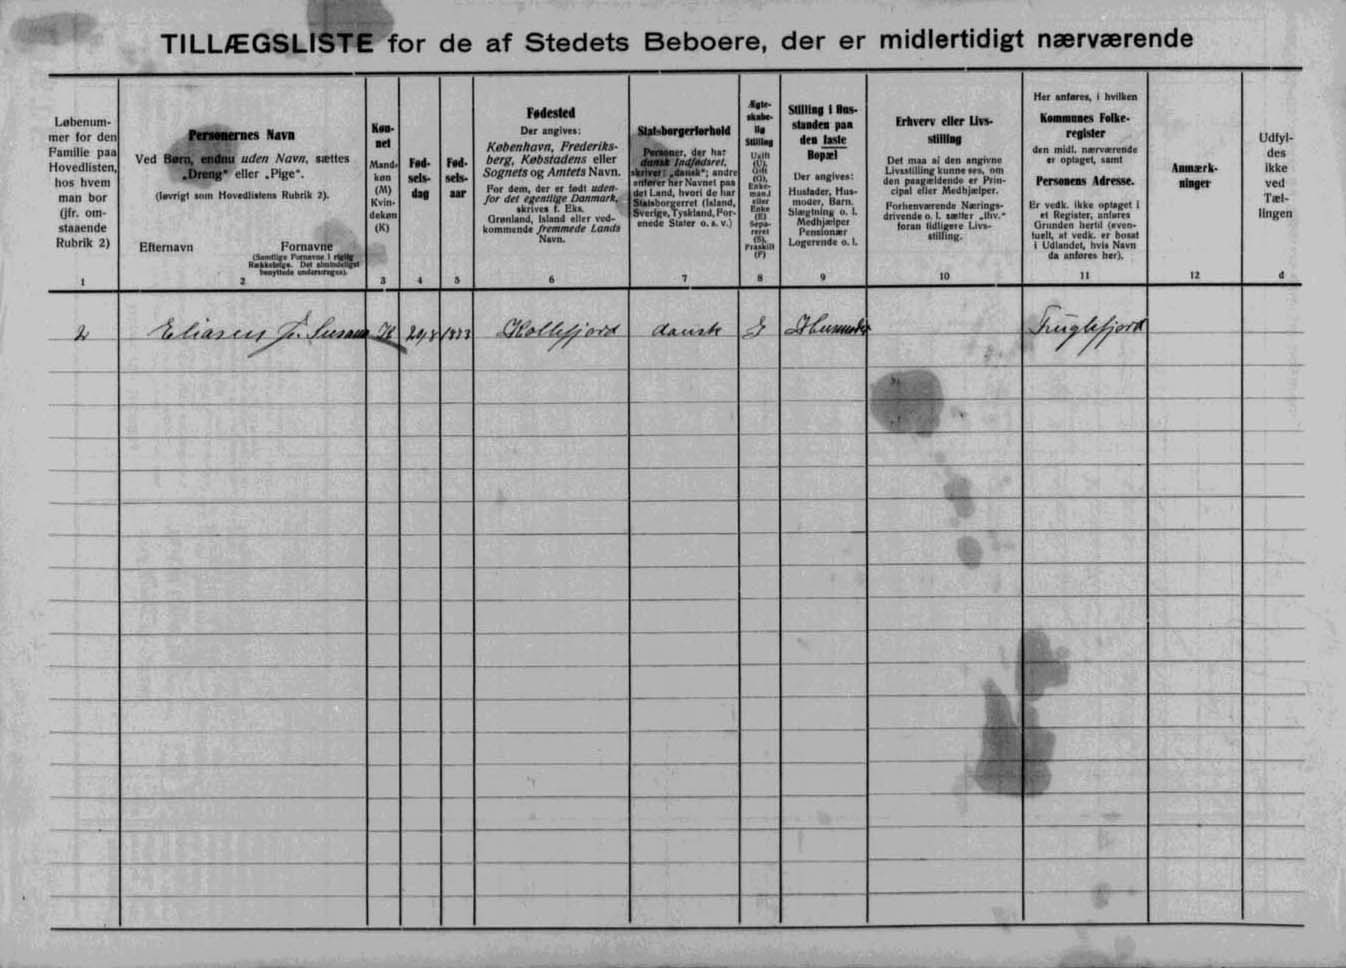 TILLÆGSLISTE for de af Stedets Beboere, der er midlertidigt nærværende
Løbenum-
mer for den
Familie paa
Hovedlisten,
hos hvem
man bor
(jfr. om-
staaende
Rubrik 2)
1
Personernes Navn
Ved Børn, endnu uden Navn, sættes
„Dreng“ eller „Pige“.
(Iøvrigt som Hovedlistens Rubrik 2).
Efternavn Fornavne
(Samtlige Fornavne i rigtig
Rækkefølge. Det almindeligst
benyttede understreges).
2
Køn-
net
Mand-
køn
(M)
Kvin-
dekøn
(K)
3
Fød-
sels-
dag
4
Fød-
sels-
aar
5
Fødested
Der angives:
København, Frederiks-
berg, Købstadens eller
Sognets og Amtets Navn.
For dem, der er født uden-
for det egentlige Danmark,
skrives f. Eks.
Grønland, Island eller ved-
kommende fremmede Lands
Navn.
6
Statsborgerforhold
Personer, der har
dansk Indfødsret,
skriver: „dansk“; andre
anfører her Navnet paa
det Land, hvori de har
Statsborgerret (Island,
Sverige, Tyskland, For-
enede Stater o. s. v.)
7
Ægte-
skabe-
lig
Stilling
Ugift
(U),
Gift
(G),
Enke-
mand
eller
Enke
(E)
Sepa-
reret
(S),
Fraskilt
(F)
8
Stilling i Hus-
standen paa
den faste
Bopæl
Der angives:
Husfader, Hus-
moder, Barn,
Slægtning o. l.
Medhjælper
Pensionær
Logerende o. l.
9
Erhverv eller Livs-
stilling
Det maa af den angivne
Livsstilling kunne ses, om
den paagældende er Prin-
cipal eller Medhjælper.
Forhenværende Nærings-
drivende o. l. sætter „fhv.“
foran tidligere Livs-
stilling.
10
Her anføres, i hvilken
Kommunes Folke-
register
den midl. nærværende
er optaget, samt
Personens Adresse.
Er vedk. ikke optaget i
et Register, anføres
Grunden hertil (even-
tuelt, at vedk. er bosat
i Udlandet, hvis Navn
da anføres her).
11
Anmærk-
ninger
12
Udfyl-
des
ikke
ved
Tæl-
lingen
d
2 Eliasen f. Susanna K 29/8 1883 Kollefjord dansk G Husmoder Fuglefjord